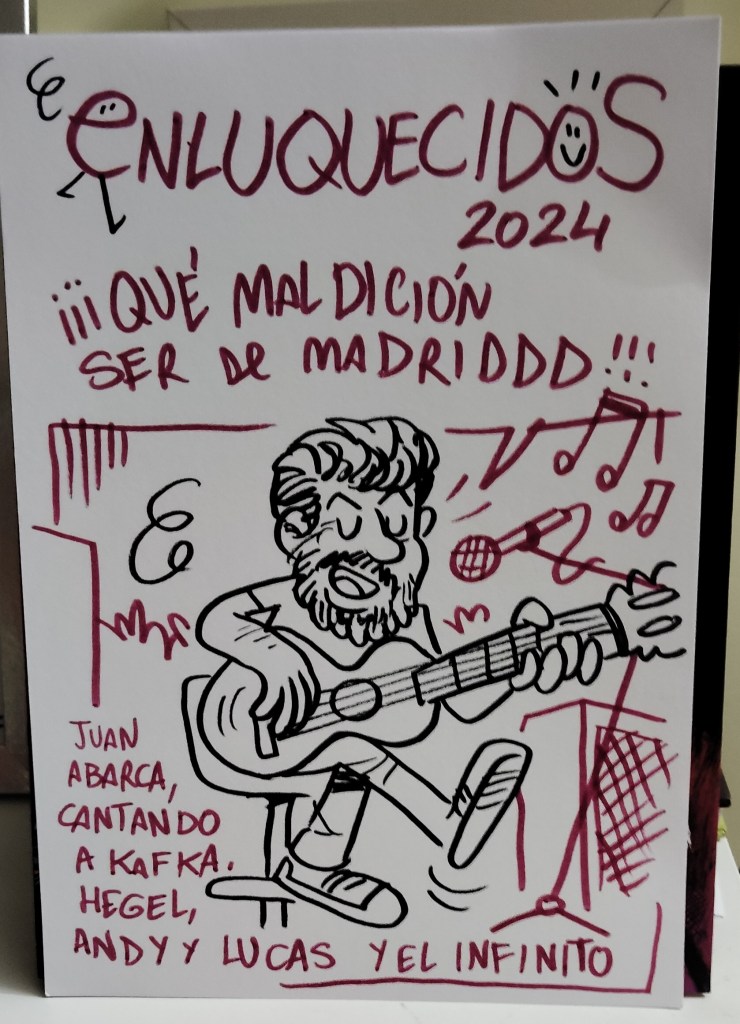 enLUQUECIDOS
2024
¡¡¡QUÉ MALDICIÓN
SER De MADRIDDD!!!
JUAN
ABARCA,
CANTANDO
A KAFKA.
HEGEL,
ANDY Y LUCAS Y EL INFINITO